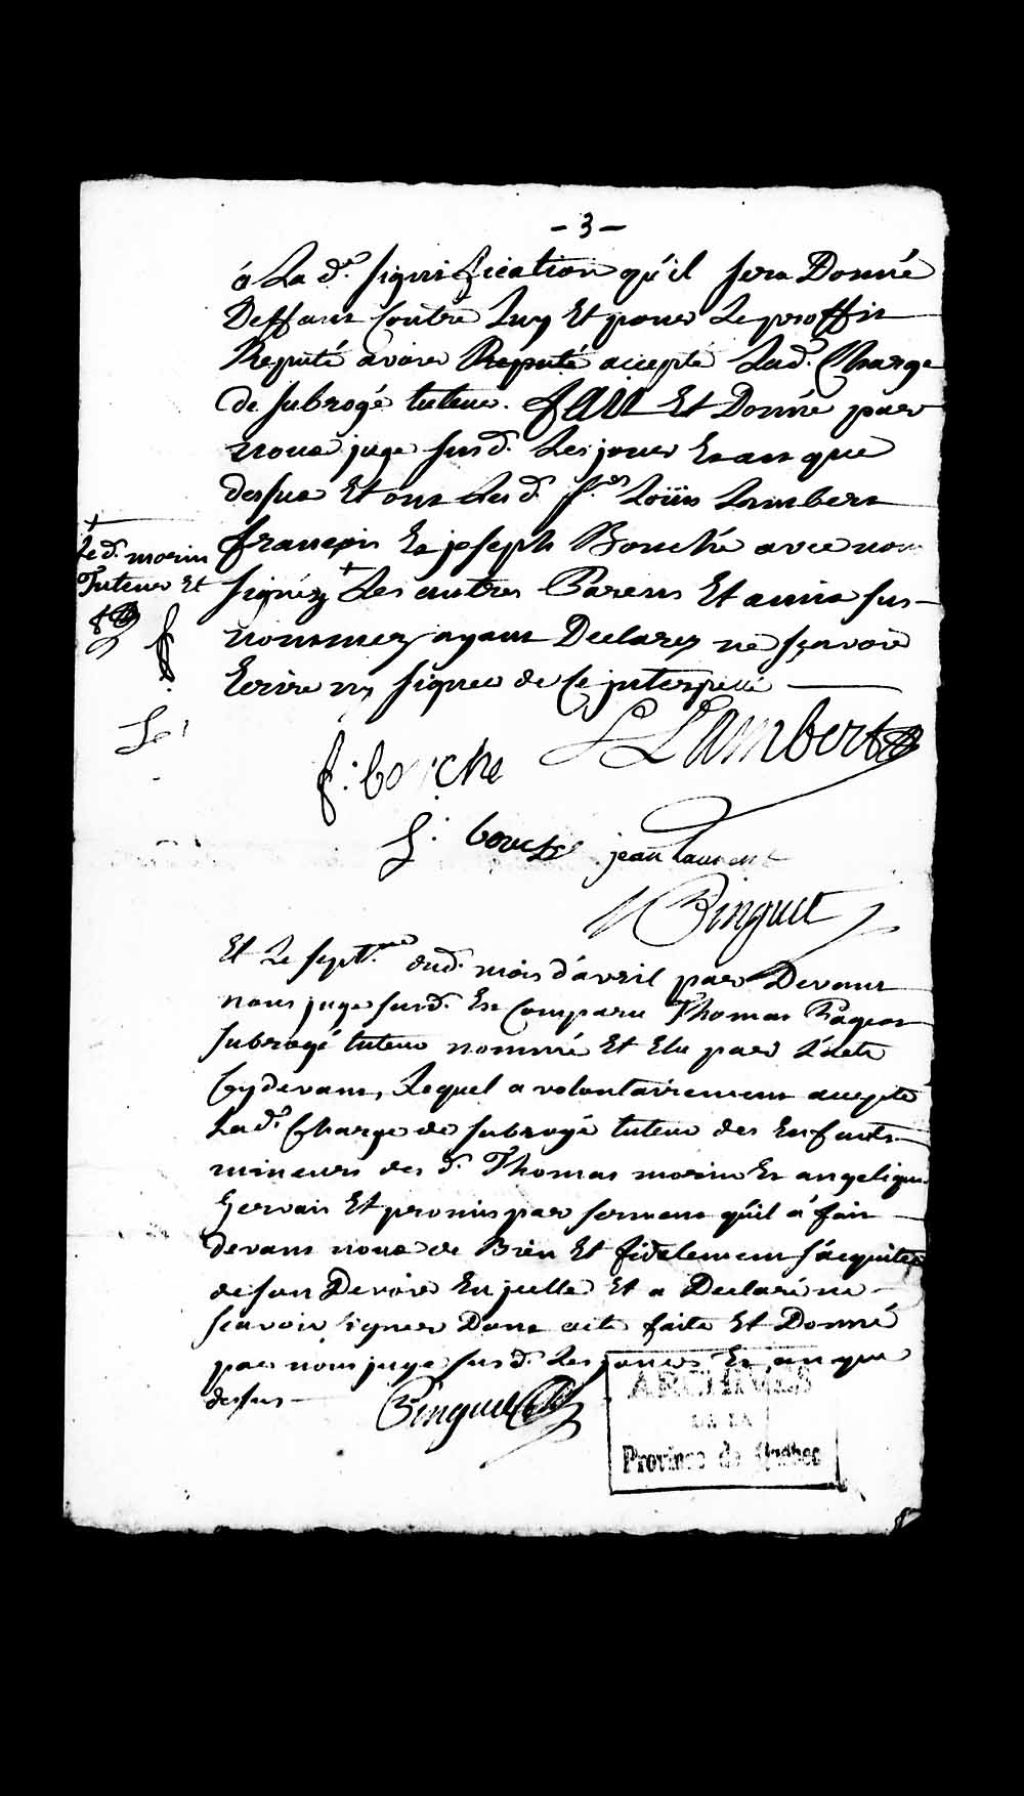 - 3 -
a La d.e signification qu'il sera Donné
Deffaut Contre Luy Et pour Le proffit
Reputé avoir Reputé accepté Lad.e Charge
de subrogé tuteur. FAIT Et Donné par
nous juge susd. Les jour Et an que
dessus Et ont Lesd. Srs Loüis Lambert
françois Et joseph Bouché avec nous
signéz + Les autres Parens Et amis sus-
nommez ayant Declarez ne sçavoir
Ecrire ny signer de Ce interpellé
+
Le d. morin
Tuteur Et
L Lambert
f : bouche
J : bouche jean laurent
Binguet
Et Le sept.me dud. mois d'avril par Devant
nous juge susd. Est Comparu Thomas Pageot
subrogé tuteur nommé Et Elu par L'acte
Cydevant, Lequel a volontairement accepté
La d.e Charge de subrogé tuteur des Enfants
mineurs des d. Thomas morin Et angelique
Gervais Et promis par serment qu'il a fait
devant nous de Bien Et fidelement s'acquiter
de son Devoir En jcelle Et a Declaré ne
scavoir signer Dont acte faite Et Donné
par nous juge susd. Les jour Et an que
dessus
Binguet
ARCHIVES
DE LA
Province de Québec